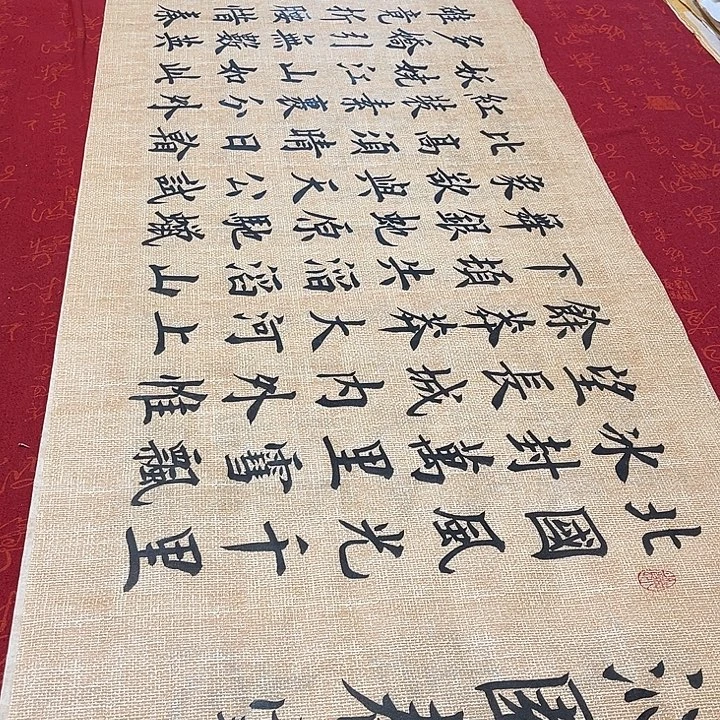 沁園春雪
北國風光千里
冰封萬里雪飄
望長城內外惟
餘莽莽大河上
下頓失滔滔山
舞銀蛇原馳蠟
象欲與天公試
比高須晴日
紅裝素裹分外
妖嬈江山如此
多嬌引無數英
雄竟折腰惜秦